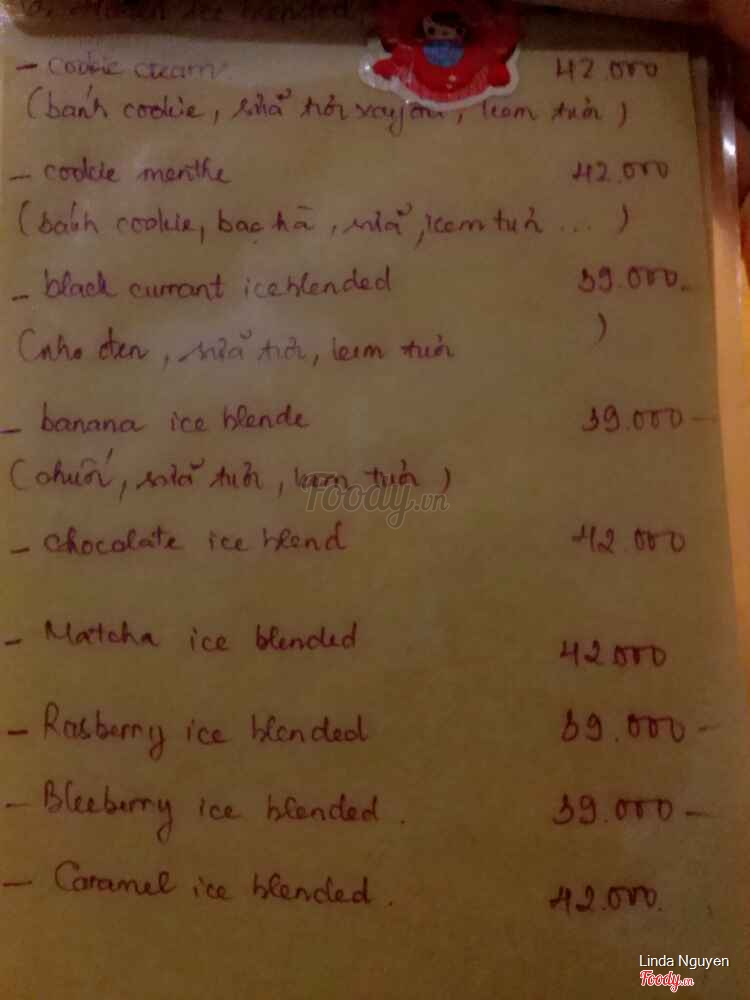 ice blended
- cookie cream 42.000
(bánh cookie, sữa tươi xay, kem tươi)
- cookie menthe 42.000
(bánh cookie, bạc hà, sữa, kem tươi ...)
- black currant ice blended 39.000
(nho đen, sữa tươi, kem tươi )
- banana ice blende 39.000 -
(chuối, sữa tươi, kem tươi)
Foody.vn
- chocolate ice blend 42.000
- Matcha ice blended 42000
- Rasberry ice blended 39.000 -
- Bleeberry ice blended. 39.000 -
- Caramel ice blended. 42.000.
Linda Nguyen
Foody.vn